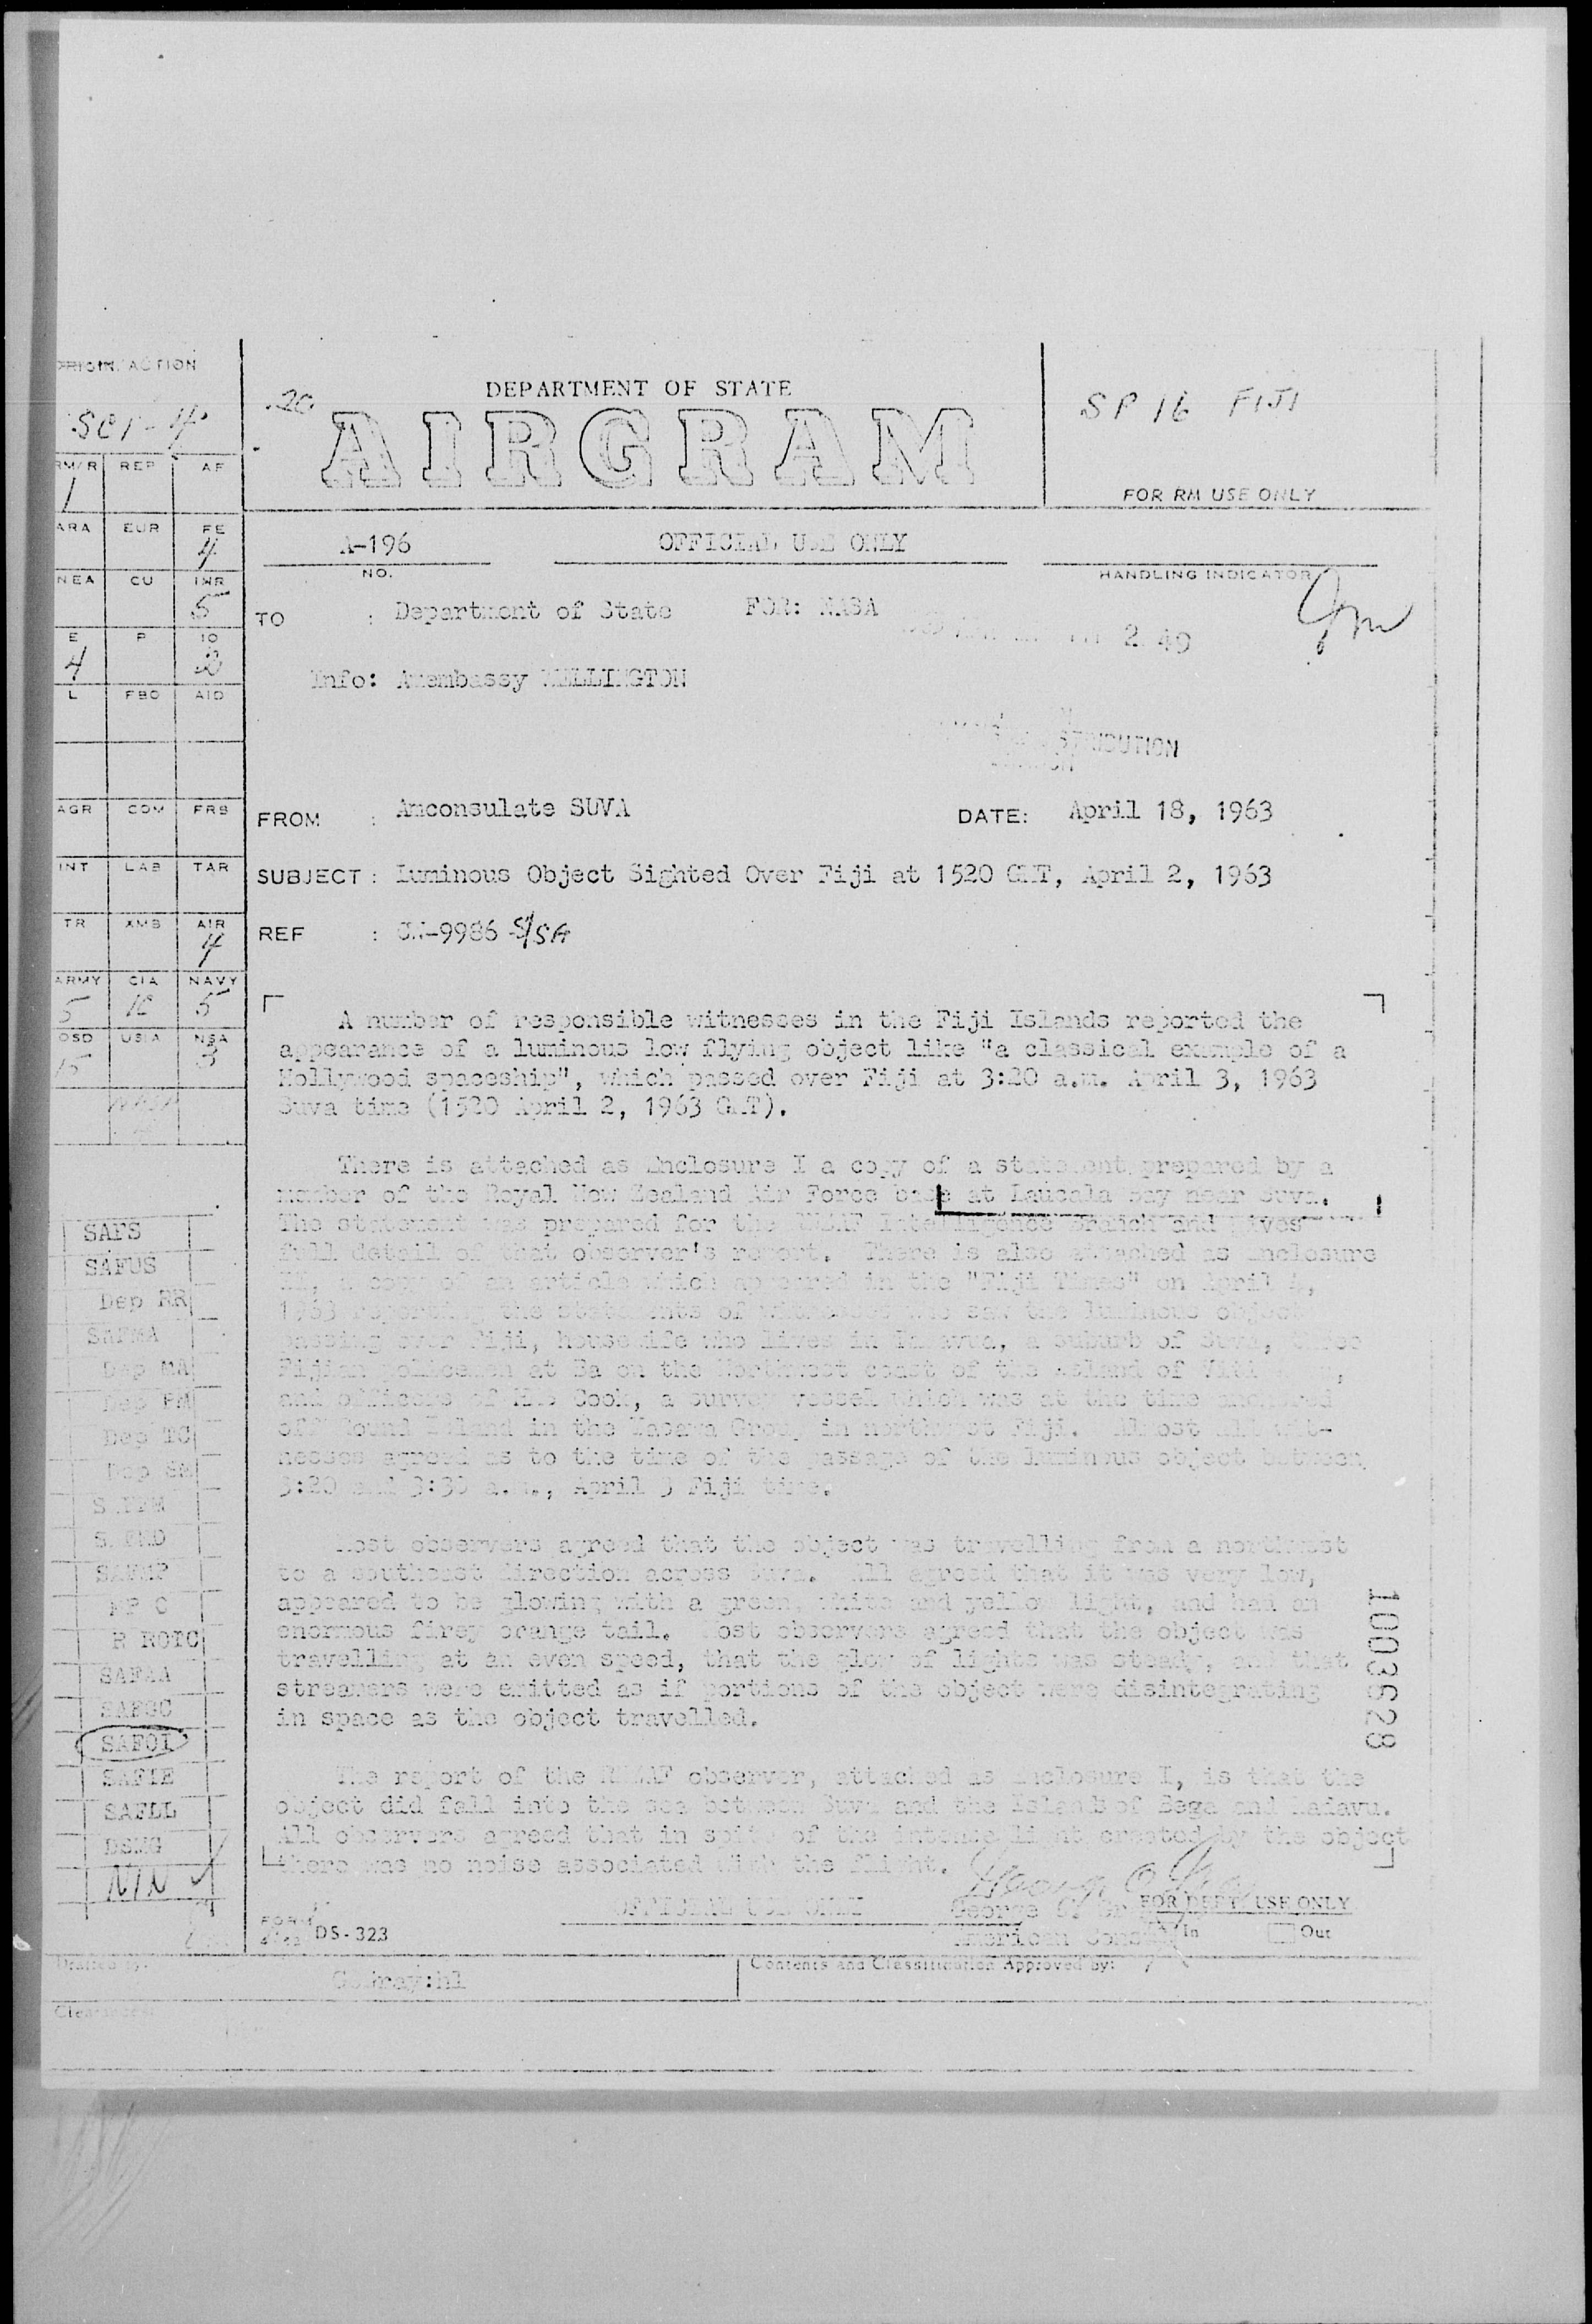 ORIGIN/ACTION
SCI-4
RM/R REP AF
1
ARA EUR FE
4
NEA CU INR
5
E P IO
4
L FBO AID
AGR COM FRB
INT LAB TAR
TR XMB AIR
4
ARMY CIA NAVY
5 10 5
OSD USIA NSA
15 3
SAFS
SAFUS
Dep RR
SAFMA
Dep MA
Dep PM
Dep TC
Dep SM
SAFAA
SAFGC
SAFOI
SAFIE
SAFLL
DSMG
NIN
DEPARTMENT OF STATE
AIRGRAM
SP 16 FIJI
FOR RM USE ONLY
A-196
NO.
OFFICIAL USE ONLY
HANDLING INDICATOR
TO : Department of State FOR: NASA
2 49
Info: Amembassy WELLINGTON
DISTRIBUTION
FROM : Amconsulate SUVA DATE: April 18, 1963
SUBJECT : Luminous Object Sighted Over Fiji at 1520 GMT, April 2, 1963
REF : -9986 S/SA
A number of responsible witnesses in the Fiji Islands reported the
appearance of a luminous low flying object like "a classical example of a
Hollywood spaceship", which passed over Fiji at 3:20 a.m. April 3, 1963
Suva time (1520 April 2, 1963 GMT).
There is attached as Enclosure I a copy of a statement prepared by a
member of the Royal New Zealand Air Force base at Laucala Bay near Suva.
The statement was prepared for the RNZAF Intelligence Branch and gives
full detail of that observer's report. There is also attached as Enclosure
II, a copy of an article which appeared in the "Fiji Times" on April 4,
1963 reporting the statements of witnesses who saw the luminous object
passing over Fiji, housewife who lives in Tamavua, a suburb of Suva, three
Fijian policemen at Ba on the Northwest coast of the Island of Viti
and officers of HMS Cook, a survey vessel which was at the time anchored
off Round Island in the Yasawa Group in northwest Fiji. Almost all wit-
nesses agreed as to the time of the passage of the luminous object between
3:20 and 3:30 a.m., April 3 Fiji time.
Most observers agreed that the object was travelling from a northwest
to a southeast direction across Suva. All agreed that it was very low,
appeared to be glowing with a green, white and yellow light, and had an
enormous firey orange tail. Most observers agreed that the object was
travelling at an even speed, that the glow of lights was steady, and that
streamers were emitted as if portions of the object were disintegrating
in space as the object travelled.
The report of the RNZAF observer, attached as Enclosure I, is that the
object did fall into the sea between Suva and the Islands of Beqa and Kadavu.
All observers agreed that in spite of the intense light created by the object
there was no noise associated with the flight.
1003628
George
American Consul
OFFICIAL USE ONLY
FOR DEPT. USE ONLY
In Out
FORM DS-323
Drafted by:
Contents and Classification Approved by:
Clearances: